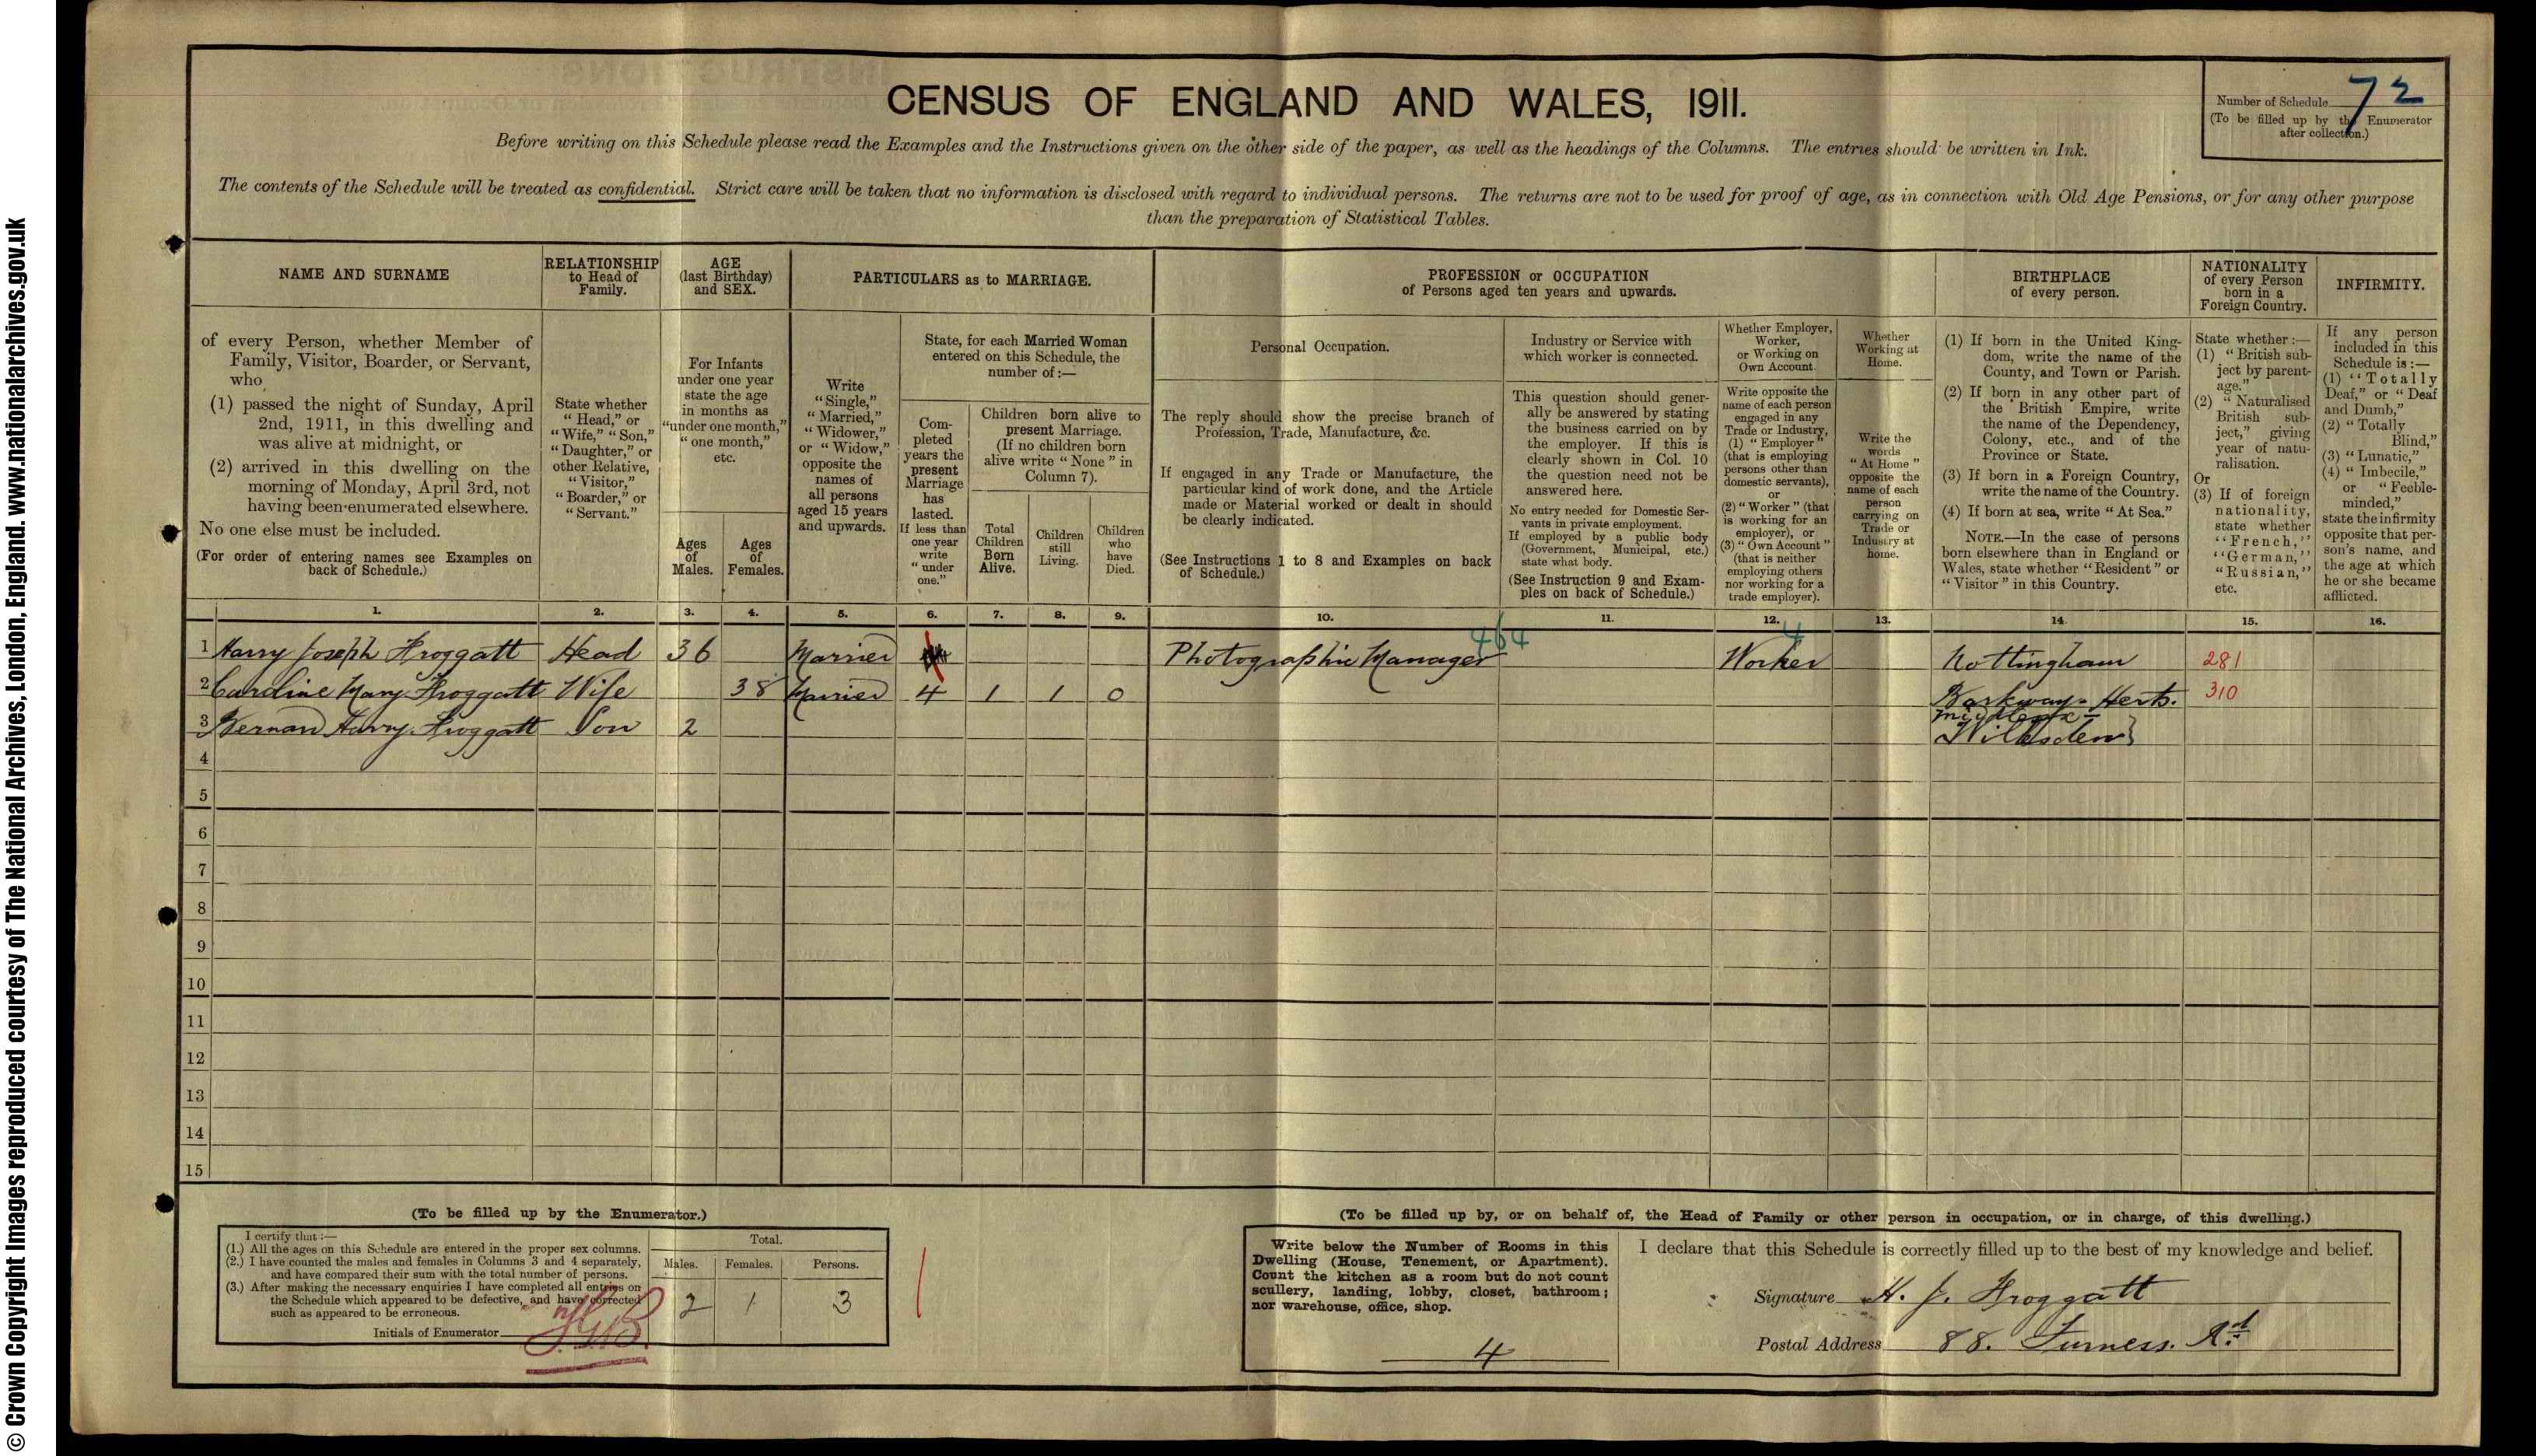 © Crown Copyright Images reproduced courtesy of The National Archives, London, England. www.nationalarchives.gov.uk
CENSUS OF ENGLAND AND WALES, 1911.
Number of Schedule 72
(To be filled up by the Enumerator
after collection.)
Before writing on this Schedule please read the Examples and the Instructions given on the other side of the paper, as well as the headings of the Columns. The entries should be written in Ink.
The contents of the Schedule will be treated as confidential. Strict care will be taken that no information is disclosed with regard to individual persons. The returns are not to be used for proof of age, as in connection with Old Age Pensions, or for any other purpose
than the preparation of Statistical Tables.
NAME AND SURNAME
of every Person, whether Member of
Family, Visitor, Boarder, or Servant,
who
(1) passed the night of Sunday, April
2nd, 1911, in this dwelling and
was alive at midnight, or
(2) arrived in this dwelling on the
morning of Monday, April 3rd, not
having been enumerated elsewhere.
No one else must be included.
(For order of entering names see Examples on
back of Schedule.)
RELATIONSHIP
to Head of
Family.
State whether
"Head," or
"Wife," "Son,"
"Daughter," or
other Relative,
"Visitor,"
"Boarder," or
"Servant."
AGE
(last Birthday)
and SEX.
For Infants
under one year
state the age
in months as
"under one month,"
"one month,"
etc.
Ages
of
Males.
Ages
of
Females.
PARTICULARS as to MARRIAGE.
Write
"Single,"
"Married,"
"Widower,"
or "Widow,"
opposite the
names of
all persons
aged 15 years
and upwards.
State, for each Married Woman
entered on this Schedule, the
number of :—
Com-
pleted
years the
present
Marriage
has
lasted.
If less than
one year
write
"under
one."
Children born alive to
present Marriage.
(If no children born
alive write "None" in
Column 7).
Total
Children
Born
Alive.
Children
still
Living.
Children
who
have
Died.
PROFESSION or OCCUPATION
of Persons aged ten years and upwards.
Personal Occupation.
The reply should show the precise branch of
Profession, Trade, Manufacture, &c.
If engaged in any Trade or Manufacture, the
particular kind of work done, and the Article
made or Material worked or dealt in should
be clearly indicated.
(See Instructions 1 to 8 and Examples on back
of Schedule.)
Industry or Service with
which worker is connected.
This question should gener-
ally be answered by stating
the business carried on by
the employer. If this is
clearly shown in Col. 10
the question need not be
answered here.
No entry needed for Domestic Ser-
vants in private employment.
If employed by a public body
(Government, Municipal, etc.)
state what body.
(See Instruction 9 and Exam-
ples on back of Schedule.)
Whether Employer,
Worker,
or Working on
Own Account.
Write opposite the
name of each person
engaged in any
Trade or Industry,
(1) "Employer"
(that is employing
persons other than
domestic servants),
or
(2) "Worker" (that
is working for an
employer), or
(3) "Own Account"
(that is neither
employing others
nor working for a
trade employer).
Whether
Working at
Home.
Write the
words
"At Home"
opposite the
name of each
person
carrying on
Trade or
Industry at
home.
BIRTHPLACE
of every person.
(1) If born in the United King-
dom, write the name of the
County, and Town or Parish.
(2) If born in any other part of
the British Empire, write
the name of the Dependency,
Colony, etc., and of the
Province or State.
(3) If born in a Foreign Country,
write the name of the Country.
(4) If born at sea, write "At Sea."
NOTE.—In the case of persons
born elsewhere than in England or
Wales, state whether "Resident" or
"Visitor" in this Country.
NATIONALITY
of every Person
born in a
Foreign Country.
State whether :—
(1) "British sub-
ject by parent-
age."
(2) "Naturalised
British sub-
ject," giving
year of natu-
ralisation.
Or
(3) If of foreign
nationality,
state whether
"French,"
"German,"
"Russian,"
etc.
INFIRMITY.
If any person
included in this
Schedule is :—
(1) "Totally
Deaf," or "Deaf
and Dumb,"
(2) "Totally
Blind,"
(3) "Lunatic,"
(4) "Imbecile,"
or "Feeble-
minded,"
state the infirmity
opposite that per-
son's name, and
the age at which
he or she became
afflicted.
1. 2. 3. 4. 5. 6. 7. 8. 9. 10. 11. 12. 13. 14. 15. 16.
464 4
1 Harry Joseph Froggatt Head 36 Married Photographic Manager Worker Nottingham 281
2 Caroline Mary Froggatt Wife 38 Married 4 1 1 0 Barkway Herts. 310
3 Harry Froggatt Son 2 Middlesex
Willesden
4
5
6
7
8
9
10
11
12
13
14
15
(To be filled up by the Enumerator.)
I certify that :—
(1.) All the ages on this Schedule are entered in the proper sex columns.
(2.) I have counted the males and females in Columns 3 and 4 separately,
and have compared their sum with the total number of persons.
(3.) After making the necessary enquiries I have completed all entries on
the Schedule which appeared to be defective, and have corrected
such as appeared to be erroneous.
Initials of Enumerator
Total.
Males. Females. Persons.
2 1 3
(To be filled up by, or on behalf of, the Head of Family or other person in occupation, or in charge, of this dwelling.)
Write below the Number of Rooms in this
Dwelling (House, Tenement, or Apartment).
Count the kitchen as a room but do not count
scullery, landing, lobby, closet, bathroom;
nor warehouse, office, shop.
4
I declare that this Schedule is correctly filled up to the best of my knowledge and belief.
Signature H. J. Froggatt
Postal Address 88. Furness. Rd